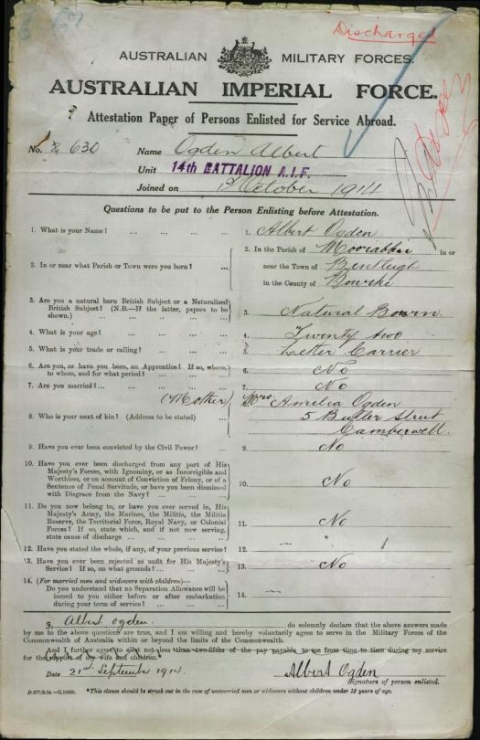 Discharged
AUSTRALIAN MILITARY FORCES.
AUSTRALIAN IMPERIAL FORCE.
Attestation Paper of Persons Enlisted for Service Abroad.
No. 630 Name Ogden Albert
Unit 14th BATTALION A.I.F.
Joined on October 1914
Questions to be put to the Person Enlisting before Attestation.
1. What is your Name? ... 1. Albert Ogden
2. In or near what Parish or Town were you born? ... 2. In the Parish of Moorabbin in or
near the Town of Bentleigh
in the County of Bourke
3. Are you a natural born British Subject or a Naturalised
British Subject? (N.B.—If the latter, papers to be
shown.) 3. Natural Born
4. What is your age? 4. Twenty two
5. What is your trade or calling? 5. Letter Carrier
6. Are you, or have you been, an Apprentice? If so, where,
to whom, and for what period? 6. No
7. Are you married? 7. No
(Mother) Mrs Amelia Ogden
8. Who is your next of kin? (Address to be stated) 8. 5 Butler Street
Camberwell.
9. Have you ever been convicted by the Civil Power? 9. No
10. Have you ever been discharged from any part of His
Majesty's Forces, with Ignominy, or as Incorrigible and
Worthless, or on account of Conviction of Felony, or of a
Sentence of Penal Servitude, or have you been dismissed
with Disgrace from the Navy? 10. No
11. Do you now belong to, or have you ever served in, His
Majesty's Army, the Marines, the Militia, the Militia
Reserve, the Territorial Force, Royal Navy, or Colonial
Forces? If so, state which, and if not now serving,
state cause of discharge 11. No
12. Have you stated the whole, if any, of your previous service? 12.
13. Have you ever been rejected as unfit for His Majesty's
Service? If so, on what grounds? 13. No
14. (For married men and widowers with children)—
Do you understand that no Separation Allowance will be
issued to you either before or after embarkation
during your term of service? 14.
I, Albert Ogden. do solemnly declare that the above answers made
by me to the above questions are true, and I am willing and hereby voluntarily agree to serve in the Military Forces of the
Commonwealth of Australia within or beyond the limits of the Commonwealth.
And I further agree to allot not less than two-fifths of the pay payable to me from time to time during my service
for the support of my wife and children.
Date 21st September 1914. Albert Ogden
Signature of person enlisted.
*This clause should be struck out in the case of unmarried men or widowers without children under 18 years of age.